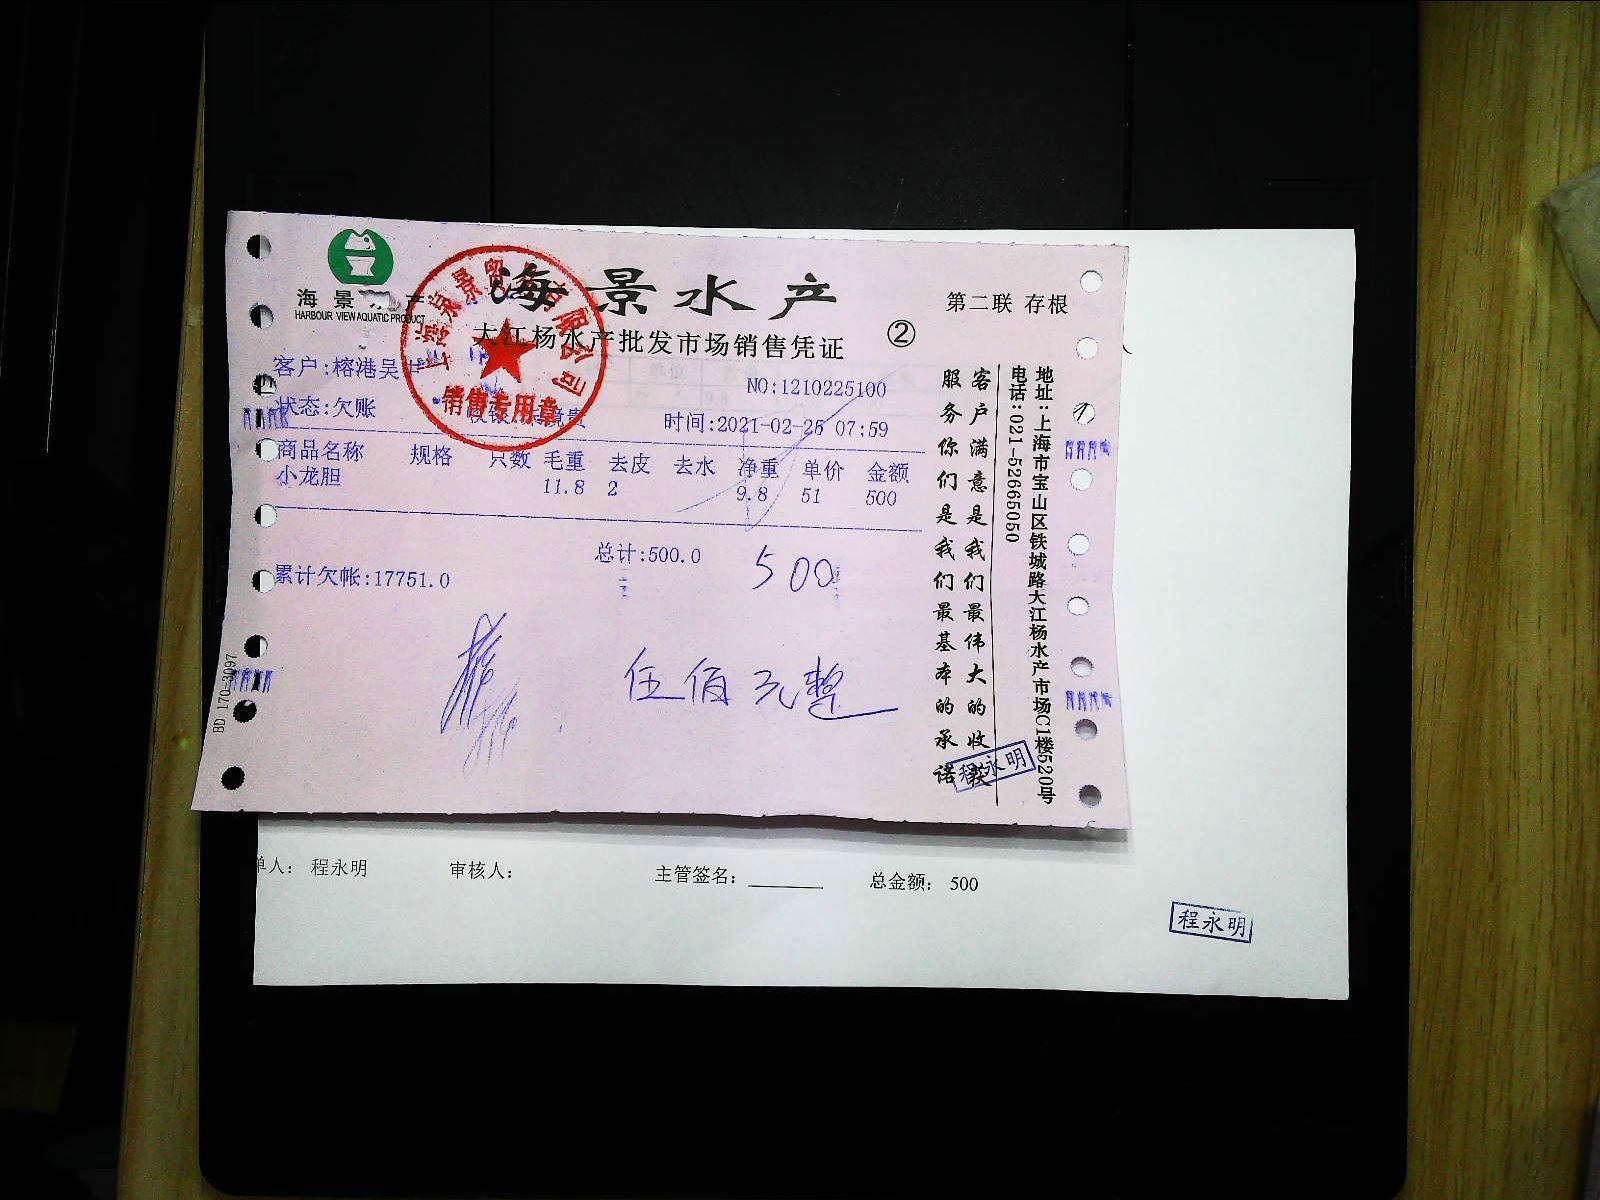 海景水产
HARBOUR VIEW AQUATIC PRODUCT
海景水产
第二联 存根
大江杨水产批发市场销售凭证
②
销售专用章
客户:榕港吴
NO:1210225100
状态:欠账
时间:2021-02-25 07:59
商品名称 规格 只数 毛重 去皮 去水 净重 单价 金额
小龙胆 11.8 2 9.8 51 500
总计:500.0
500
累计欠帐:17751.0
伍佰元整
客户满意是我们最伟大的收获
服务你们是我们最基本的承诺
地址:上海市宝山区铁城路大江杨水产市场C1楼520号
电话:021-52665050
程永明
BD 170-3097
单人: 程永明 审核人: 主管签名: 总金额: 500
程永明